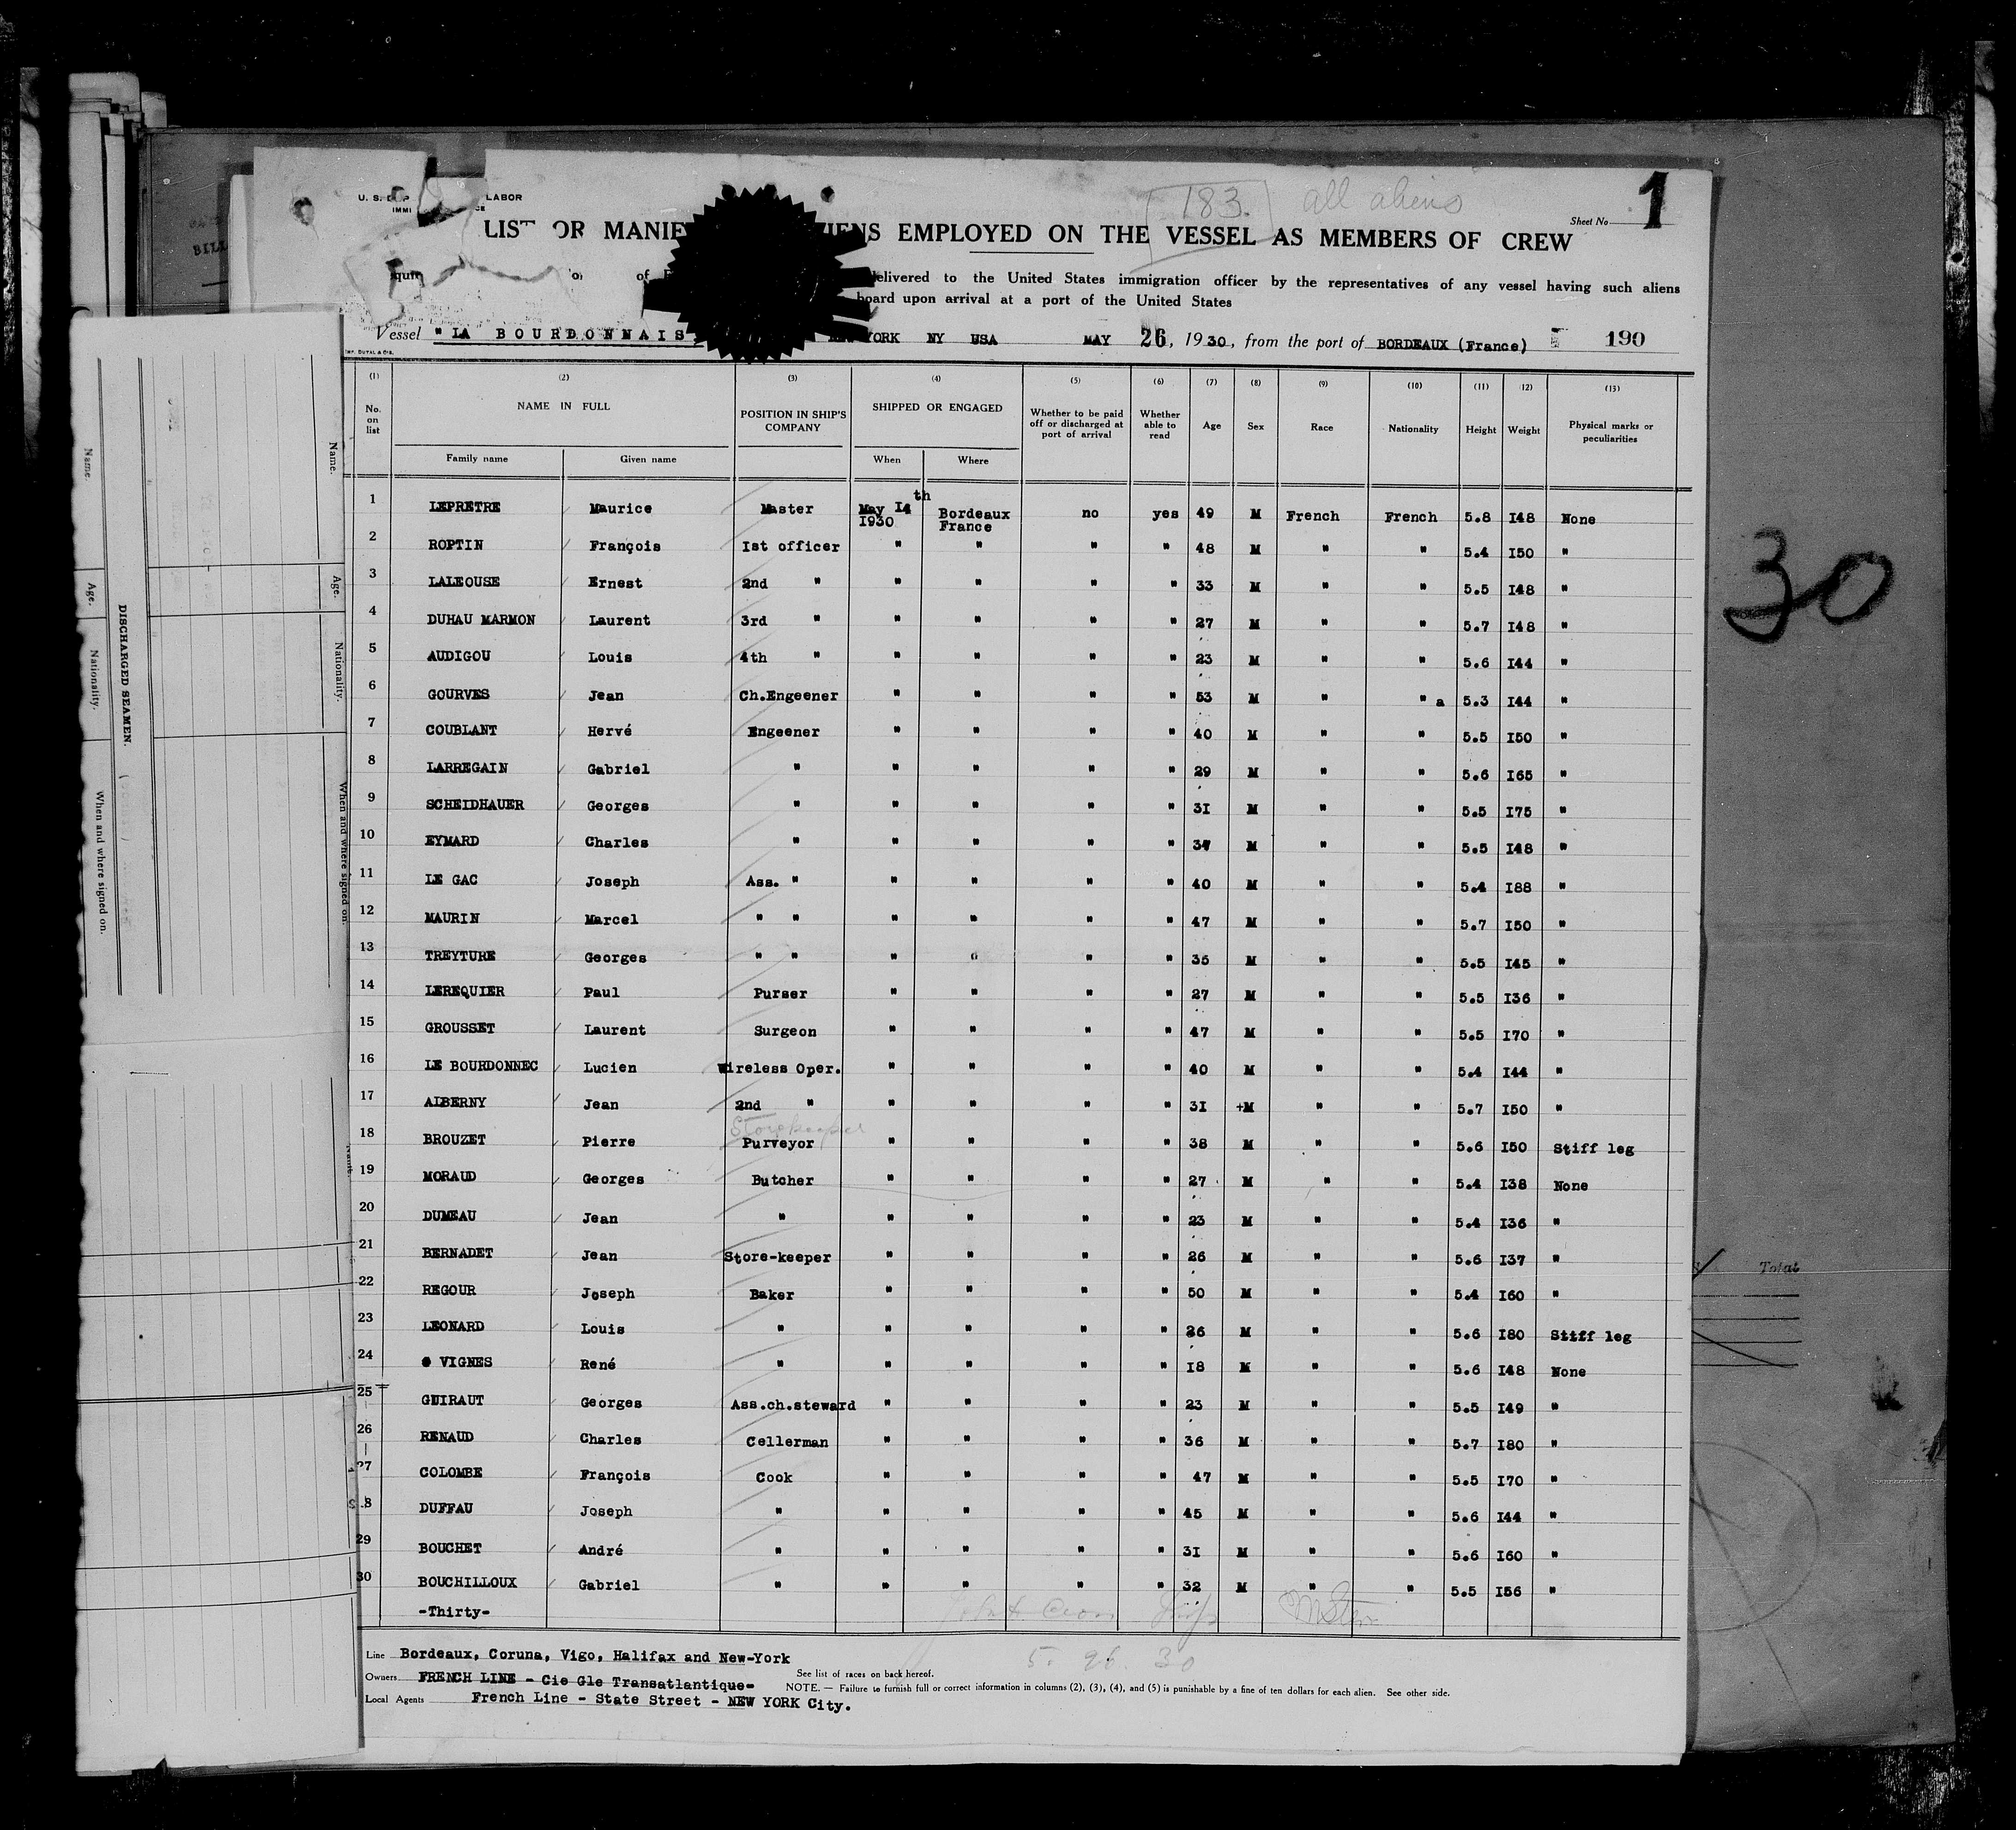 183. all aliens
U. S. LABOR
IMMI
Sheet No 1
LIST OR EMPLOYED ON THE VESSEL AS MEMBERS OF CREW
of delivered to the United States immigration officer by the representatives of any vessel having such aliens
board upon arrival at a port of the United States
Vessel "LA BOURDONNAIS YORK NY USA MAY 26, 1930, from the port of BORDEAUX (France) 190
(1) (2) (3) (4) (5) (6) (7) (8) (9) (10) (11) (12) (13)
No. on list NAME IN FULL POSITION IN SHIP'S COMPANY SHIPPED OR ENGAGED Whether to be paid off or discharged at port of arrival Whether able to read Age Sex Race Nationality Height Weight Physical marks or peculiarities
Family name Given name When Where
1 LEPRETRE Maurice Master May 14th 1930 Bordeaux France no yes 49 M French French 5.8 I48 None
2 ROPTIN François Ist officer " " " " 48 M " " 5.4 I50 "
3 LALEOUSE Ernest 2nd " " " " " 33 M " " 5.5 I48 "
4 DUHAU MARMON Laurent 3rd " " " " " 27 M " " 5.7 I48 "
5 AUDIGOU Louis 4th " " " " " 23 M " " 5.6 I44 "
6 GOURVES Jean Ch.Engeener " " " " 53 M " " a 5.3 I44 "
7 COUBLANT Hervé Engeener " " " " 40 M " " 5.5 I50 "
8 LARREGAIN Gabriel " " " " " 29 M " " 5.6 I65 "
9 SCHEIDHAUER Georges " " " " " 31 M " " 5.5 I75 "
10 EYMARD Charles " " " " " 37 M " " 5.5 I48 "
11 LE GAC Joseph Ass. " " " " " 40 M " " 5.4 I88 "
12 MAURIN Marcel " " " " " " 47 M " " 5.7 I50 "
13 TREYTURE Georges " " " " " " 35 M " " 5.5 I45 "
14 LEREQUIER Paul Purser " " " " 27 M " " 5.5 I36 "
15 GROUSSET Laurent Surgeon " " " " 47 M " " 5.5 I70 "
16 LE BOURDONNEC Lucien Wireless Oper. " " " " 40 M " " 5.4 I44 "
17 ALBERNY Jean 2nd " " " " " 31 +M " " 5.7 I50 "
Storekeeper
18 BROUZET Pierre Purveyor " " " " 38 M " " 5.6 I50 Stiff leg
19 MORAUD Georges Butcher " " " " 27 M " " 5.4 I38 None
20 DUMEAU Jean " " " " " 23 M " " 5.4 I36 "
21 BERNADET Jean Store-keeper " " " " 26 M " " 5.6 I37 "
22 REGOUR Joseph Baker " " " " 50 M " " 5.4 I60 "
23 LEONARD Louis " " " " " 26 M " " 5.6 I80 Stiff leg
24 VIGNES René " " " " " I8 M " " 5.6 I48 None
25 GUIRAUT Georges Ass.ch.steward " " " " 23 M " " 5.5 I49 "
26 RENAUD Charles Cellerman " " " " 36 M " " 5.7 I80 "
27 COLOMBE François Cook " " " " 47 M " " 5.5 I70 "
28 DUFFAU Joseph " " " " " 45 M " " 5.6 I44 "
29 BOUCHET André " " " " " 31 M " " 5.6 I60 "
30 BOUCHILLOUX Gabriel " " " " " 32 M " " 5.5 I56 "
-Thirty-
Line Bordeaux, Coruna, Vigo, Halifax and New-York
5. 26 30
Owners FRENCH LINE - Cie Gle Transatlantique-
See list of races on back hereof.
NOTE. — Failure to furnish full or correct information in columns (2), (3), (4), and (5) is punishable by a fine of ten dollars for each alien. See other side.
Local Agents French Line - State Street - NEW YORK City.
30
Total
Name. Age. Nationality. When and where signed on.
DISCHARGED SEAMEN.
Name. Age. Nationality. When and where signed on.